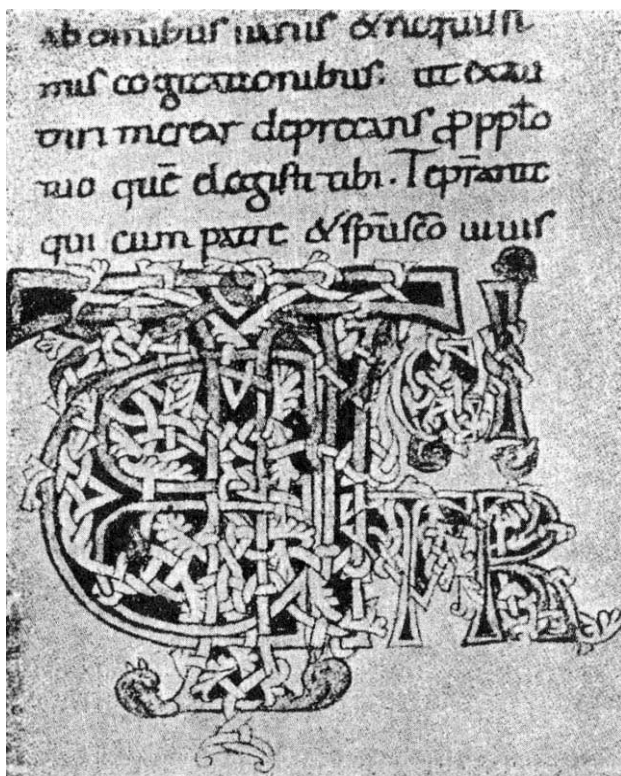 ab omnibus uanis & nequissi
mis cogitationibus. ut exau
diri merear deprecans ꝓ
tuo quē elegisti tibi. Te
qui cum patre & sp̄u sc̄o uiuis
TE IGI
TUR